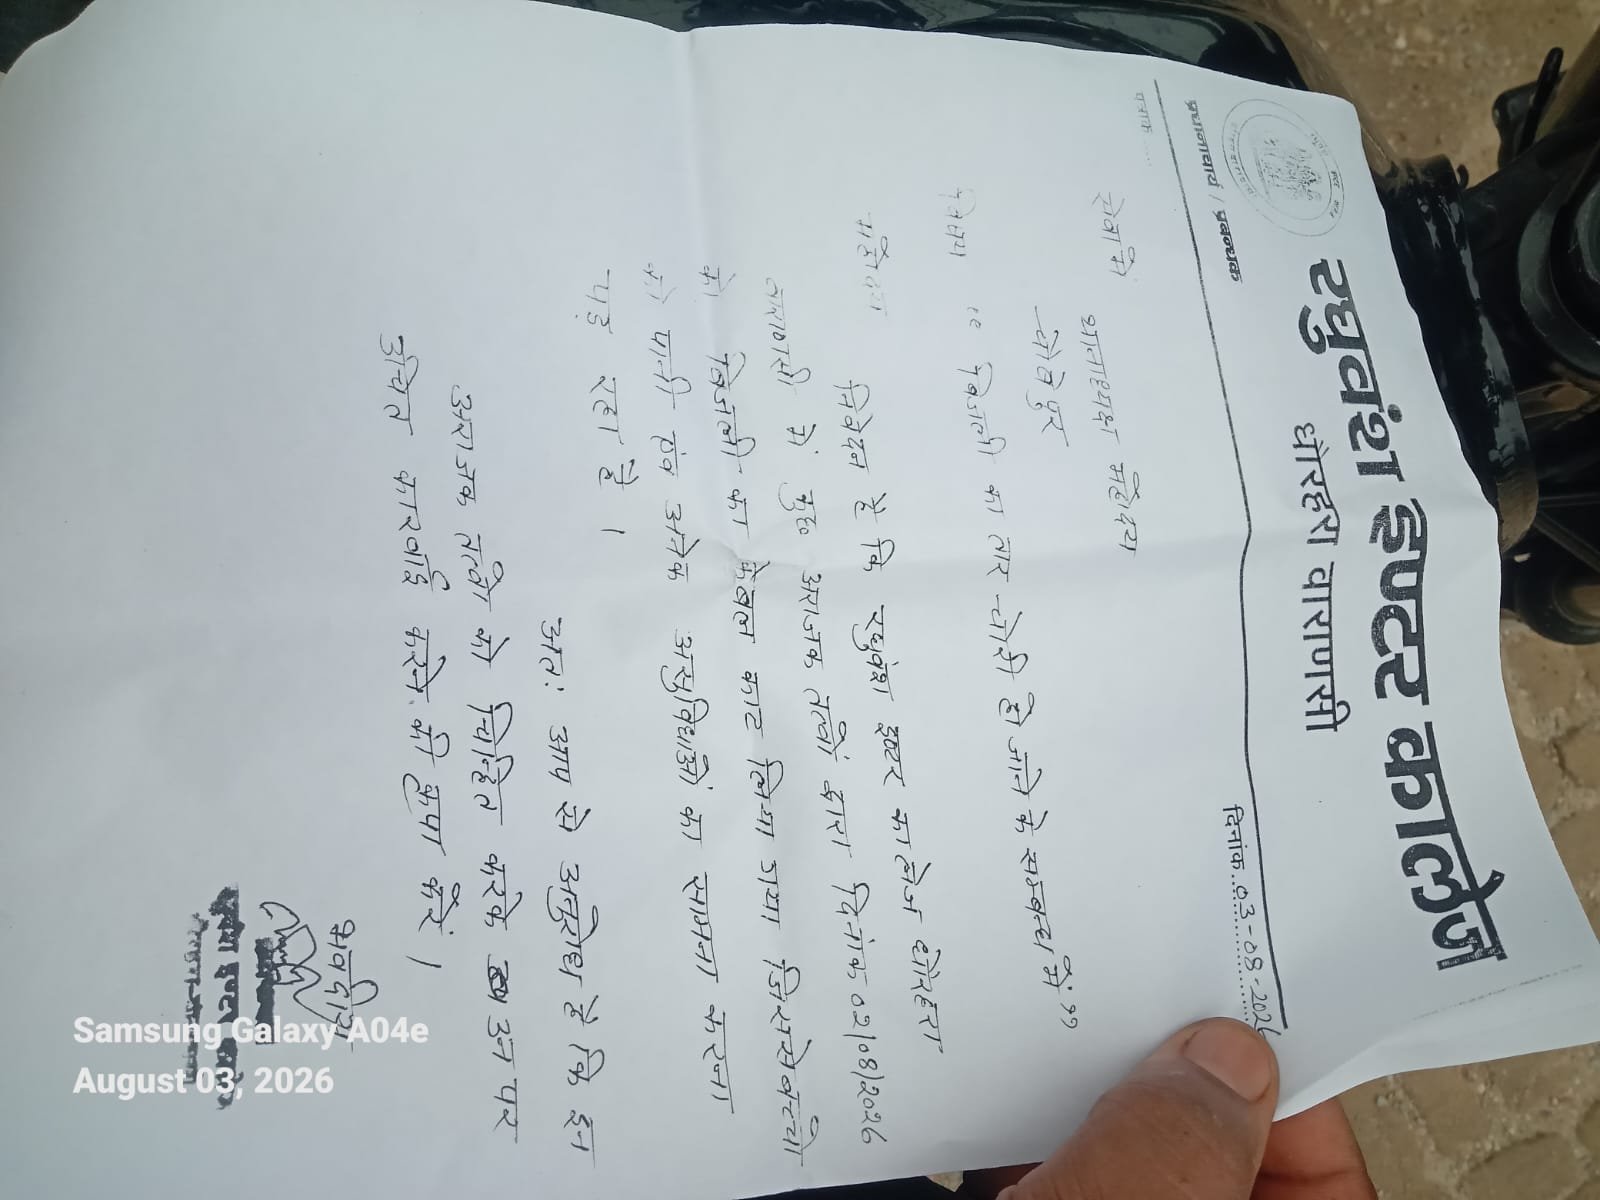 रघुवंश इण्टर कालेज
धौरहरा वाराणसी
प्रधानाचार्य / प्रबन्धक
पत्रांक......
दिनांक..03-08-2026
सेवा में
थानाध्यक्ष महोदय
चोबेपुर
विषय "बिजली का तार चोरी हो जाने के सम्बन्ध में"
महोदय
निवेदन है कि रघुवंश इण्टर कालेज धौरहरा
वाराणसी में कुछ अराजक तत्वों द्वारा दिनांक 02/08/2026
को बिजली का केबल काट लिया गया जिससे बच्चो
को पानी एंव अनेक असुविधाओं का सामना करना
पड़ रहा है।
अतः आप से अनुरोध है कि इन
अराजक तत्वो को चिन्हित करके उन पर
उचित कारवाई करने की कृपा करें।
भवदीय
Samsung Galaxy A04e
August 03, 2026